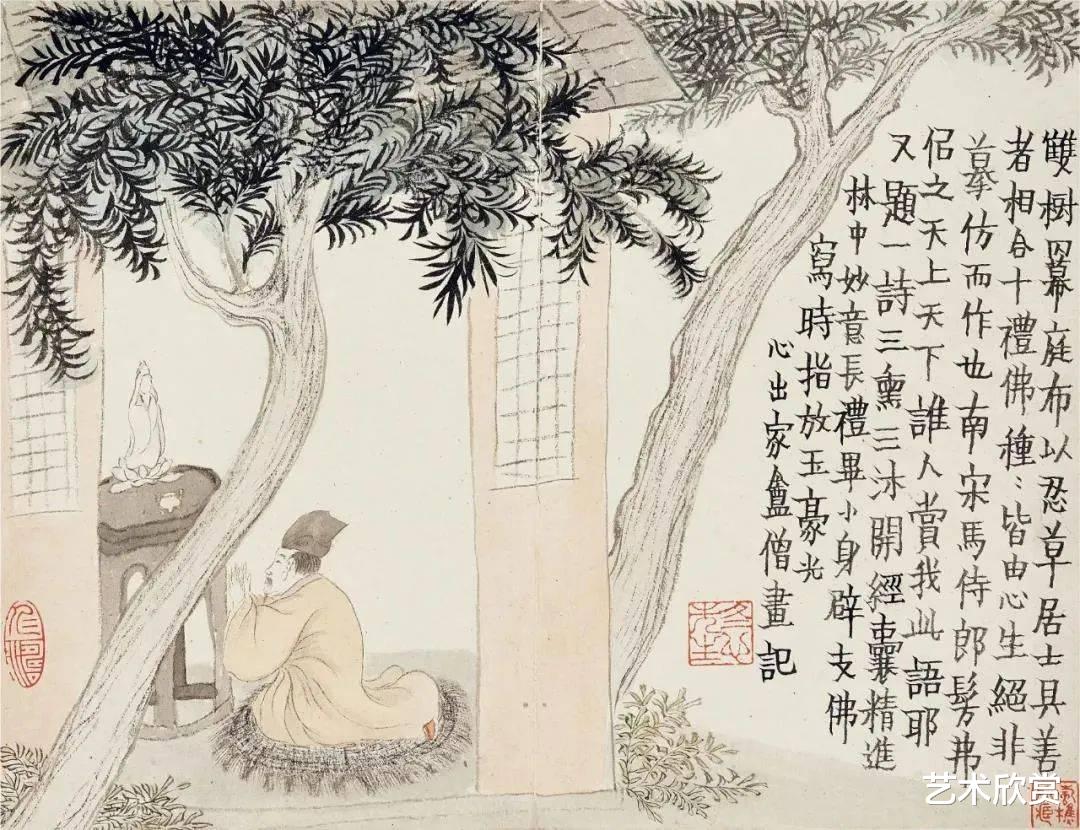 雙樹羃庭布以忍草居士具善
者相合十禮佛種〻皆由心生絕非
摹仿而作也南宋馬侍郎髣弗
侶之天上天下誰人賞我此語耶
又題一詩三熏三沐開經囊精進
林中妙意長禮畢小身辟支佛
寫時指放玉豪光
心出家盦僧畫記
艺术欣赏